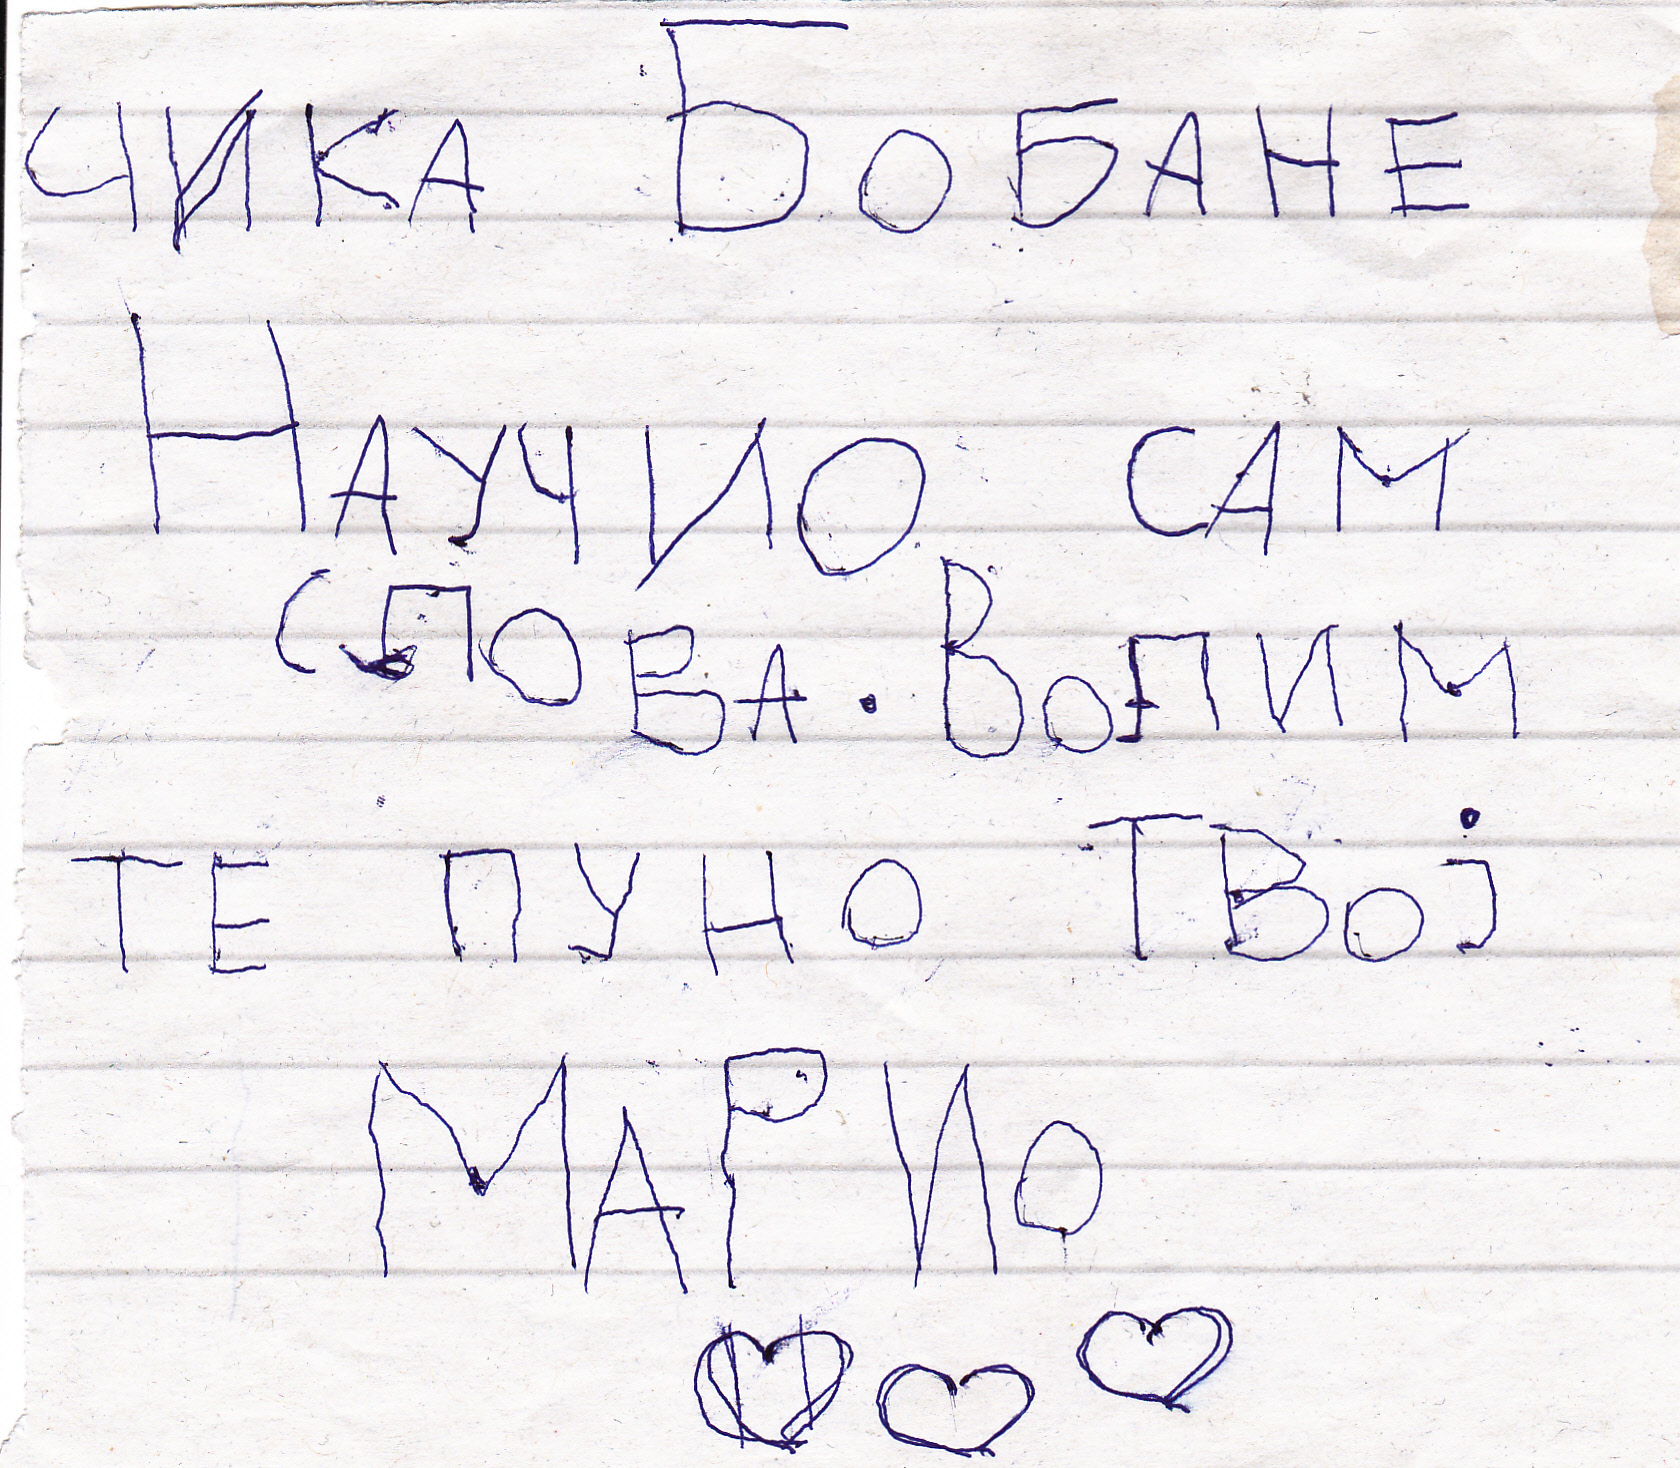 чика Бобане
Научио сам
слова. Волим
те пуно Твој
Марио